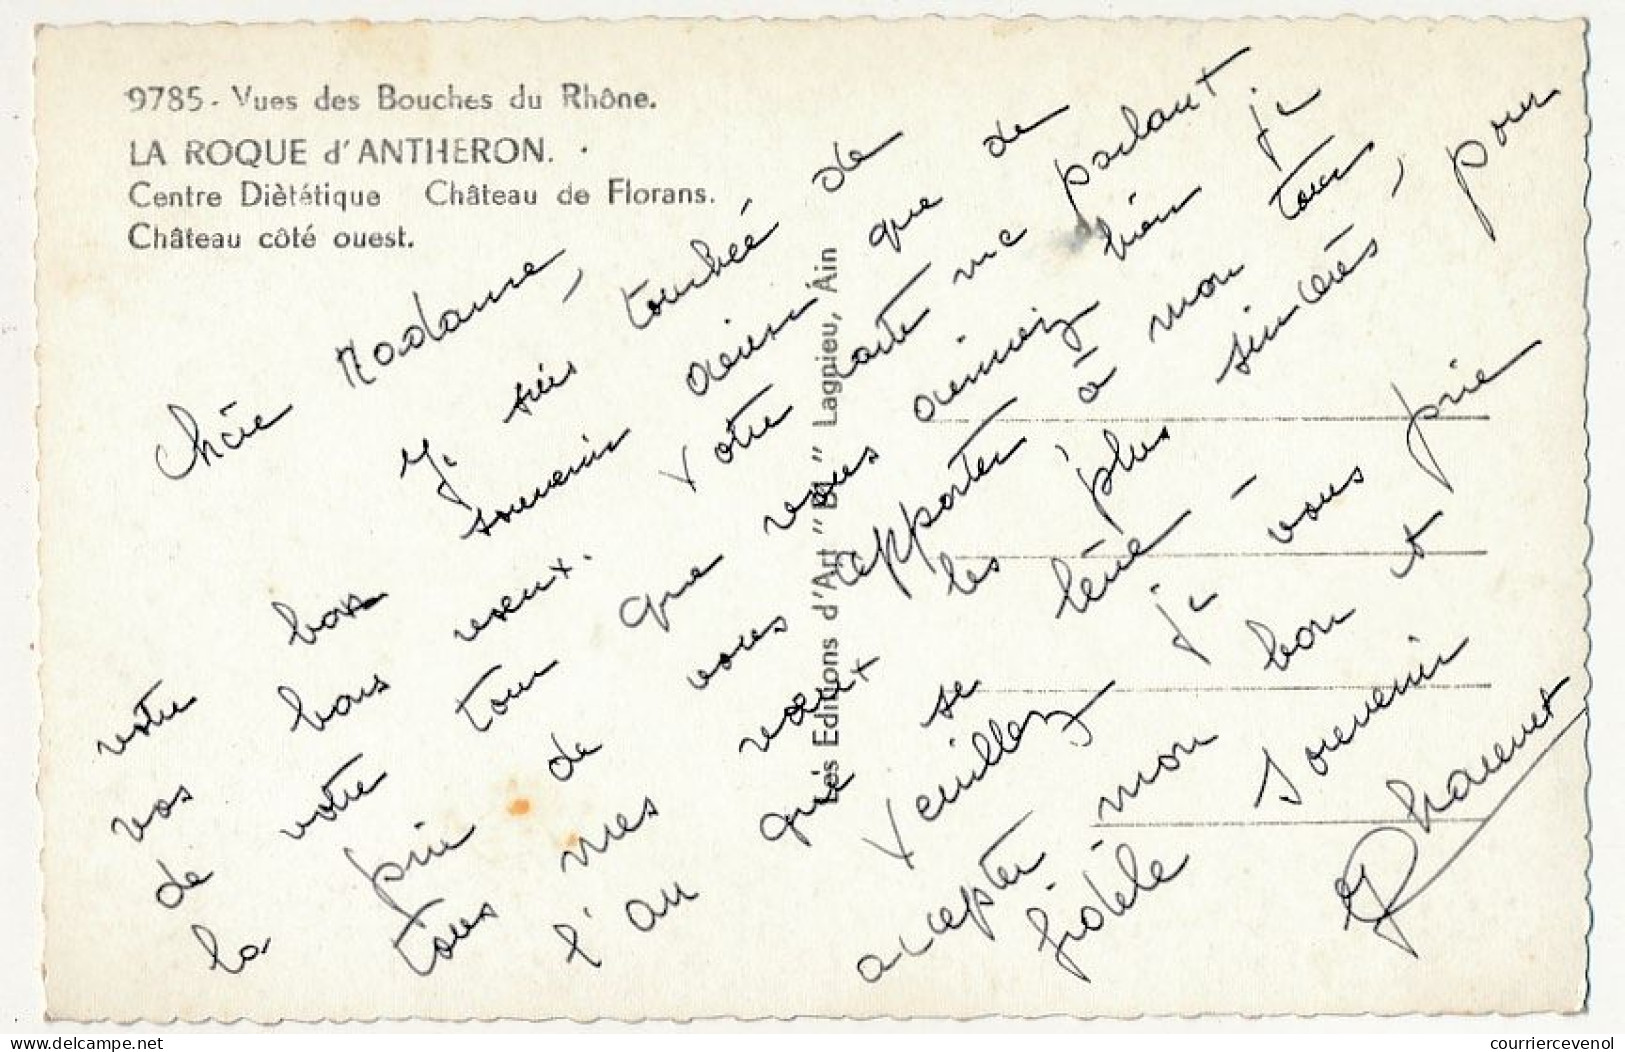 9785 - Vues des Bouches du Rhône.
LA ROQUE d'ANTHERON.
Centre Diètétique Château de Florans.
Château côté ouest.
Les Editions d'Art "BL" Lagnieu, Ain
Chère Madame,
Je suis touchée de
votre bon souvenir ainsi que de
vos bons vœux. Votre carte me parlant
de votre tour que vous aimiez bien je
la prie de vous apporter à mon tour
tous mes vœux les plus sincères, pour
l'an qui se lève -
Veuillez je vous prie
accepter mon bon et
fidèle souvenir